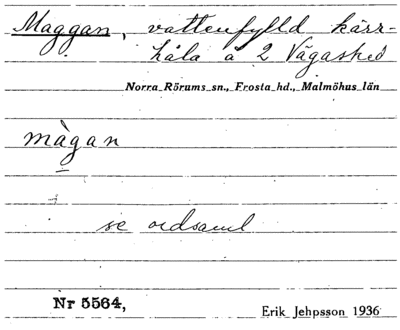 Maggan, vattenfylld kärr-
håla å 2 Vägasked
Norra Rörums sn., Frosta hd., Malmöhus län
màgan
se ordsaml
Nr 5564,
Erik Jehpsson 1936